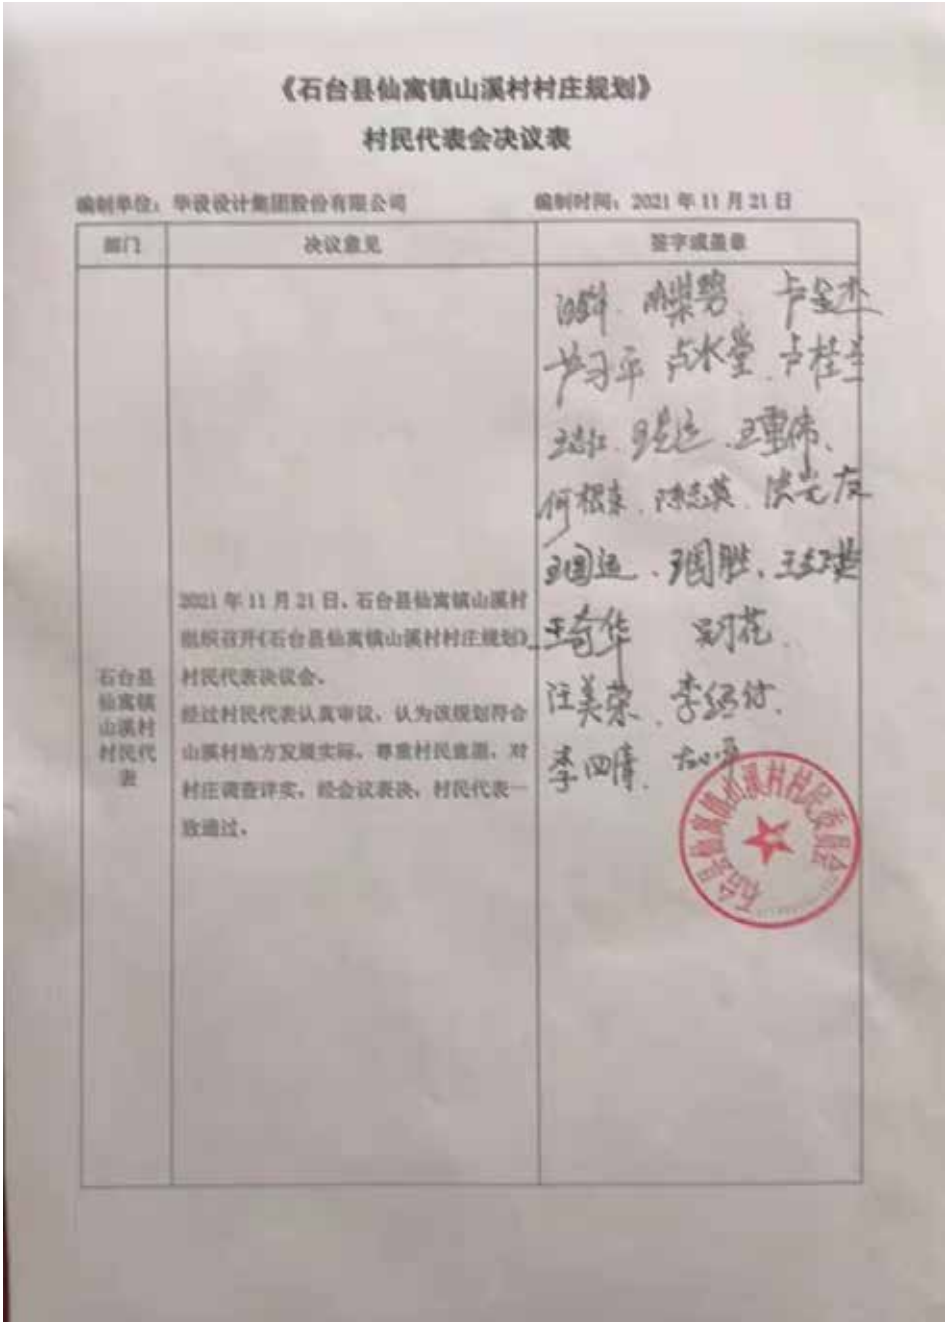 《石台县仙寓镇山溪村村庄规划》
村民代表会决议表
编制单位：华设设计集团股份有限公司 编制时间：2021 年 11 月 21 日
部门 决议意见 签字或盖章
石台县
仙寓镇
山溪村
村民代
表
2021 年 11 月 21 日，石台县仙寓镇山溪村
组织召开《石台县仙寓镇山溪村村庄规划》
村民代表决议会。
经过村民代表认真审议，认为该规划符合
山溪村地方发展实际，尊重村民意愿，对
村庄调查详实，经会议表决，村民代表一
致通过。
卢习平 卢水堂 卢桂兰
王重伟
何根来 陈志英
王国运 王国胜
王奇华
汪美荣
李四清
石台县仙寓镇山溪村村民委员会